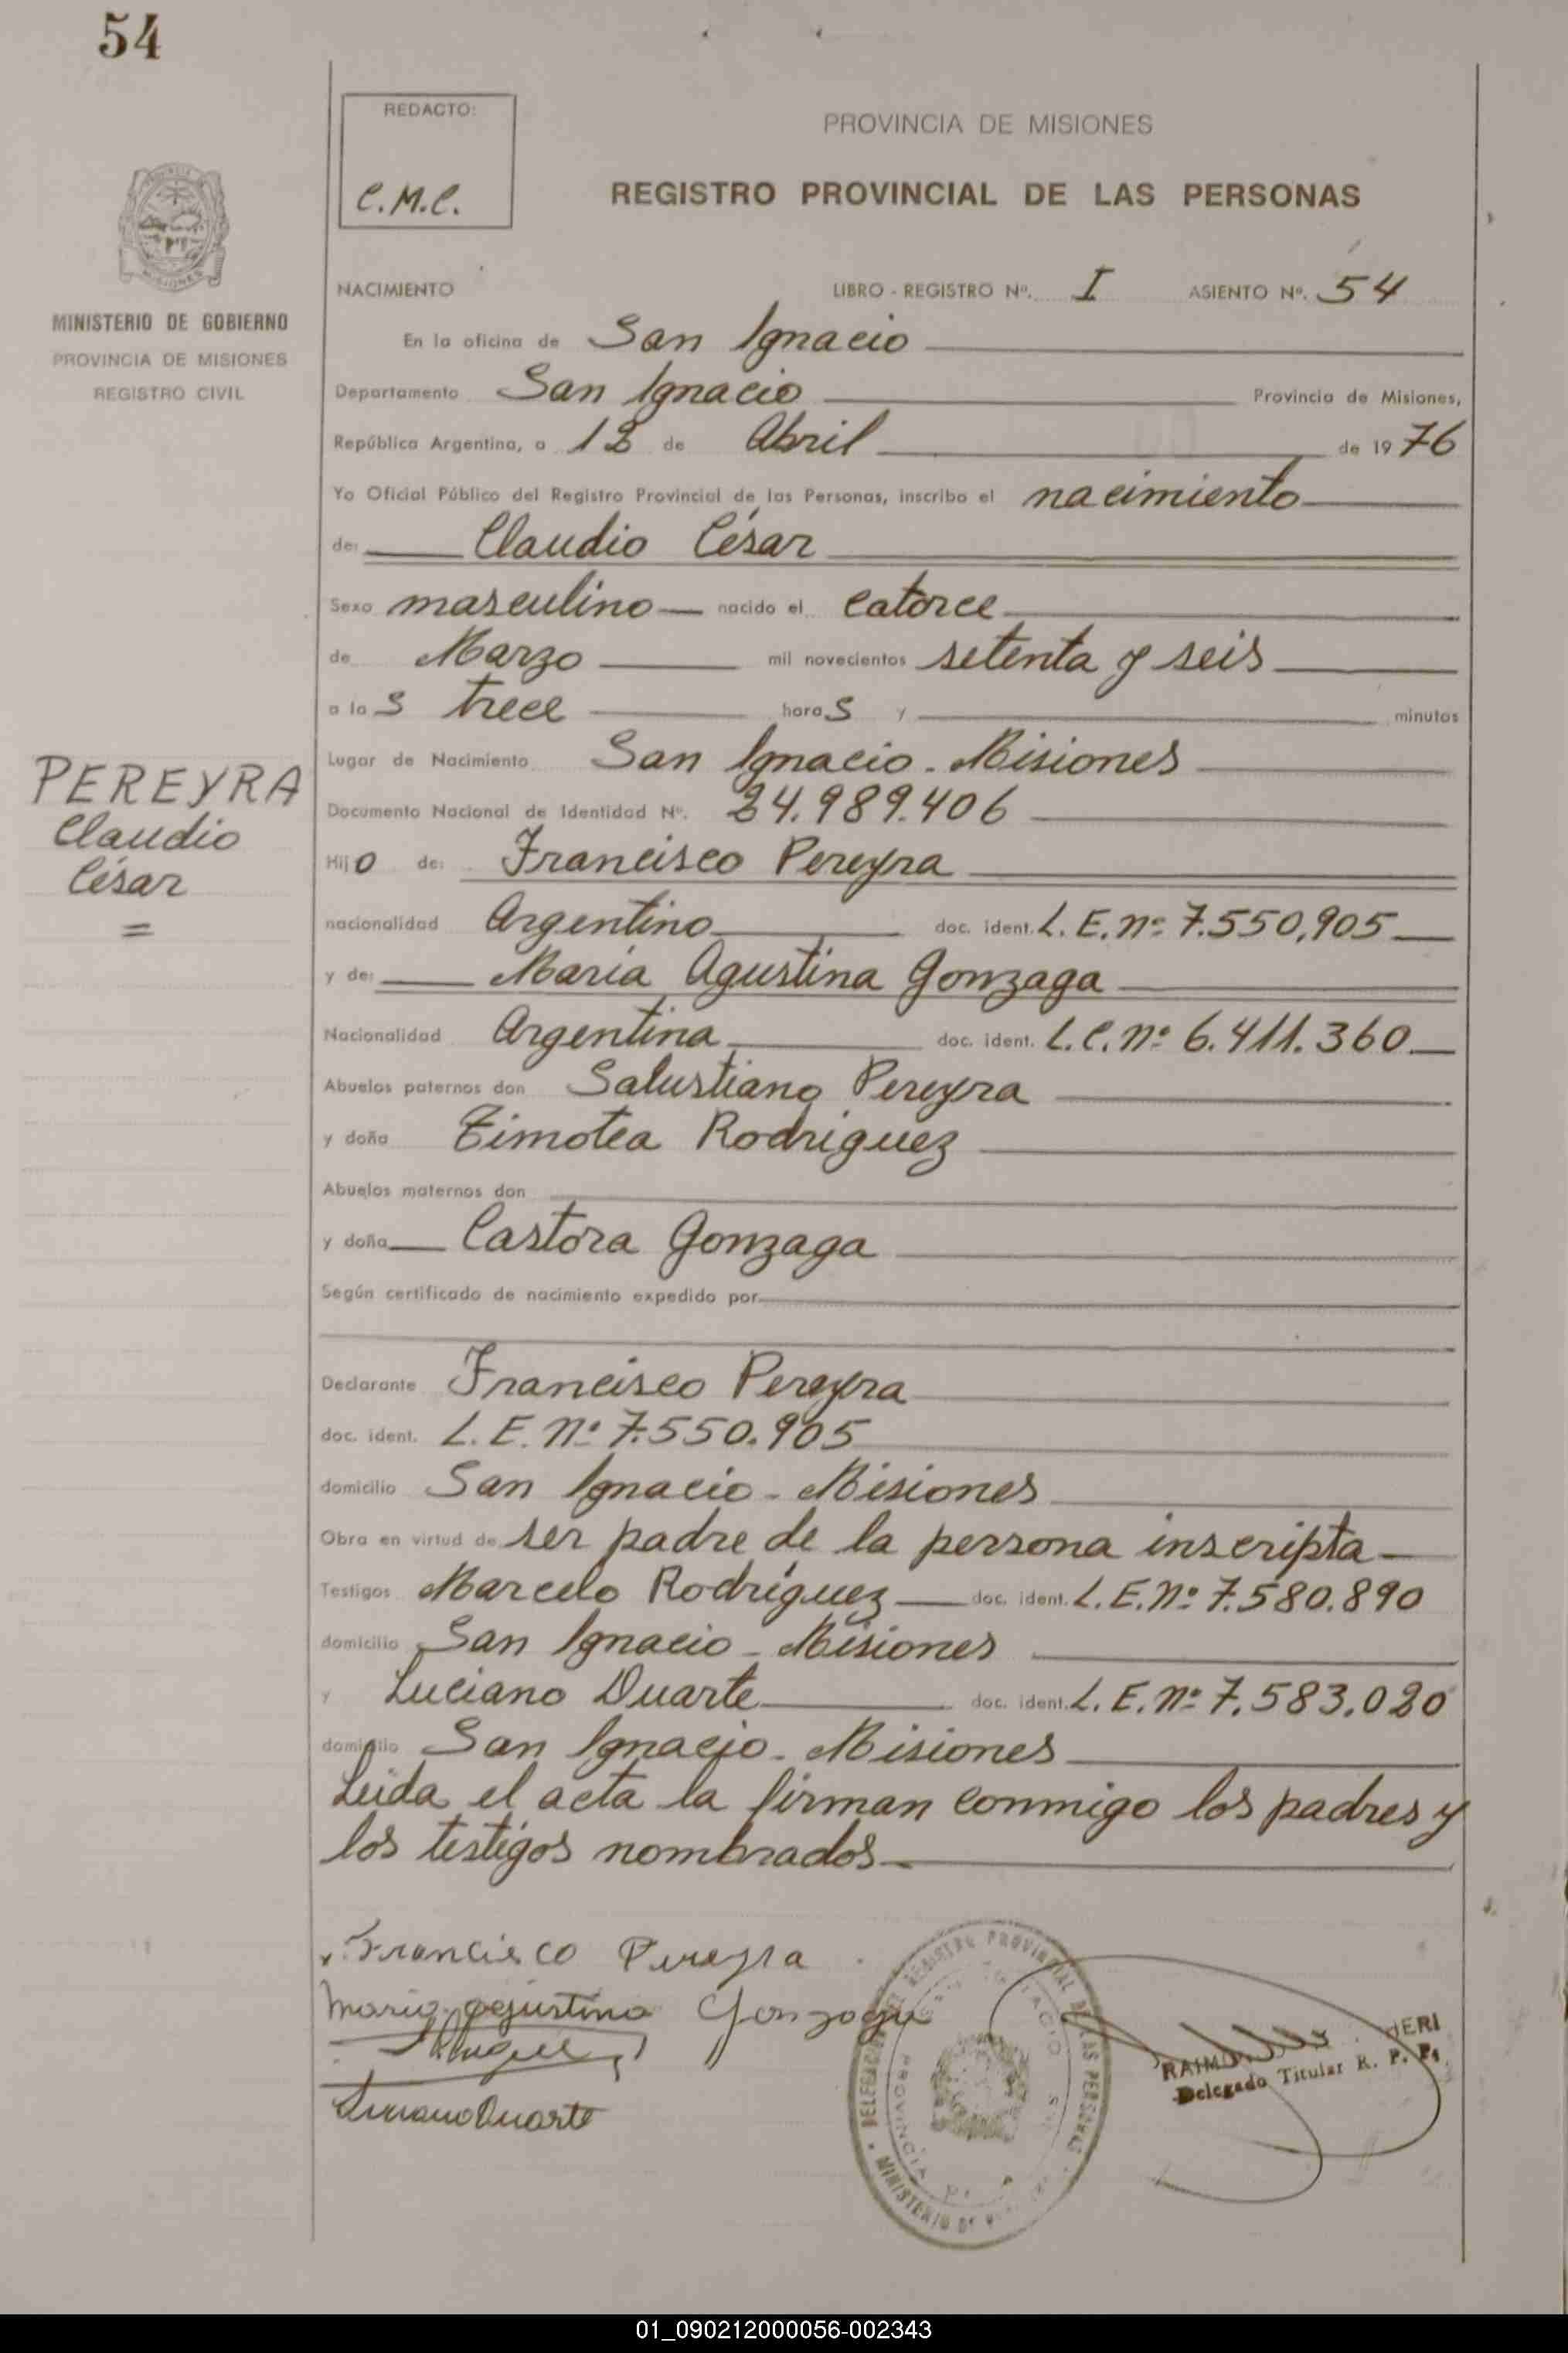 54
REDACTO:
C.M.C.
PROVINCIA DE MISIONES
REGISTRO PROVINCIAL DE LAS PERSONAS
MISIONES
MINISTERIO DE GOBIERNO
PROVINCIA DE MISIONES
REGISTRO CIVIL
NACIMIENTO LIBRO - REGISTRO Nº. I ASIENTO Nº. 54
En la oficina de San Ignacio
Departamento San Ignacio Provincia de Misiones,
República Argentina, a 12 de Abril de 1976
Yo Oficial Público del Registro Provincial de las Personas, inscribo el nacimiento
de: Claudio César
Sexo masculino nacido el catorce
de Marzo mil novecientos setenta y seis
a las trece horas y minutos
Lugar de Nacimiento San Ignacio - Misiones
PEREYRA
Claudio
César
=
Documento Nacional de Identidad Nº. 24.989.406
Hijo de: Francisco Pereyra
nacionalidad Argentino doc. ident. L.E. nº 7.550,905
y de: María Agustina Gonzaga
Nacionalidad Argentina doc. ident. L.C. nº 6.411.360
Abuelos paternos don Salustiano Pereyra
y doña Timotea Rodríguez
Abuelos maternos don
y doña Castora Gonzaga
Según certificado de nacimiento expedido por
Declarante Francisco Pereyra
doc. ident. L.E. nº 7.550.905
domicilio San Ignacio - Misiones
Obra en virtud de ser padre de la persona inscripta
Testigos Marcelo Rodríguez doc. ident. L.E. nº 7.580.890
domicilio San Ignacio - Misiones
y Luciano Duarte doc. ident. L.E. nº 7.583.020
domicilio San Ignacio - Misiones
Leída el acta la firman conmigo los padres y
los testigos nombrados
Francisco Pereyra
Maria Agustina Gonzaga
Luciano Duarte
REGISTRO PROVINCIAL DE LAS PERSONAS
MINISTERIO DE
Delegado Titular R. P. P.
01_090212000056-002343